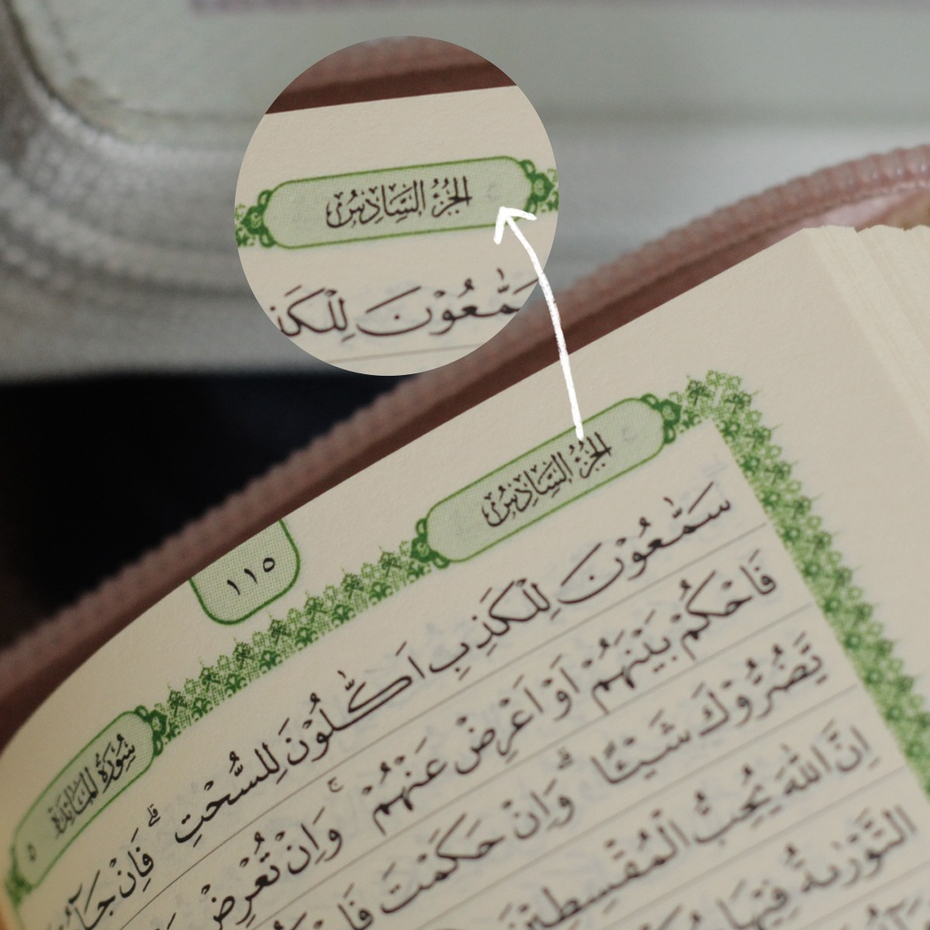 الجزء السادس
سَمّٰعُوْنَ لِلْكَذِ
الجزء السادس
١١٥
سورة المائدة ٥
سَمّٰعُوْنَ لِلْكَذِبِ اَكّٰلُوْنَ لِلسُّحْتِ ۗ فَاِنْ جَاۤءُ
فَاحْكُمْ بَيْنَهُمْ اَوْ اَعْرِضْ عَنْهُمْ ۚ وَاِنْ تُعْرِضْ
يَّضُرُّوْكَ شَيْـًٔا ۗ وَاِنْ حَكَمْتَ فَا
اِنَّ اللّٰهَ يُحِبُّ الْمُقْسِطِيْنَ
التَّوْرٰىةُ فِيْهَا